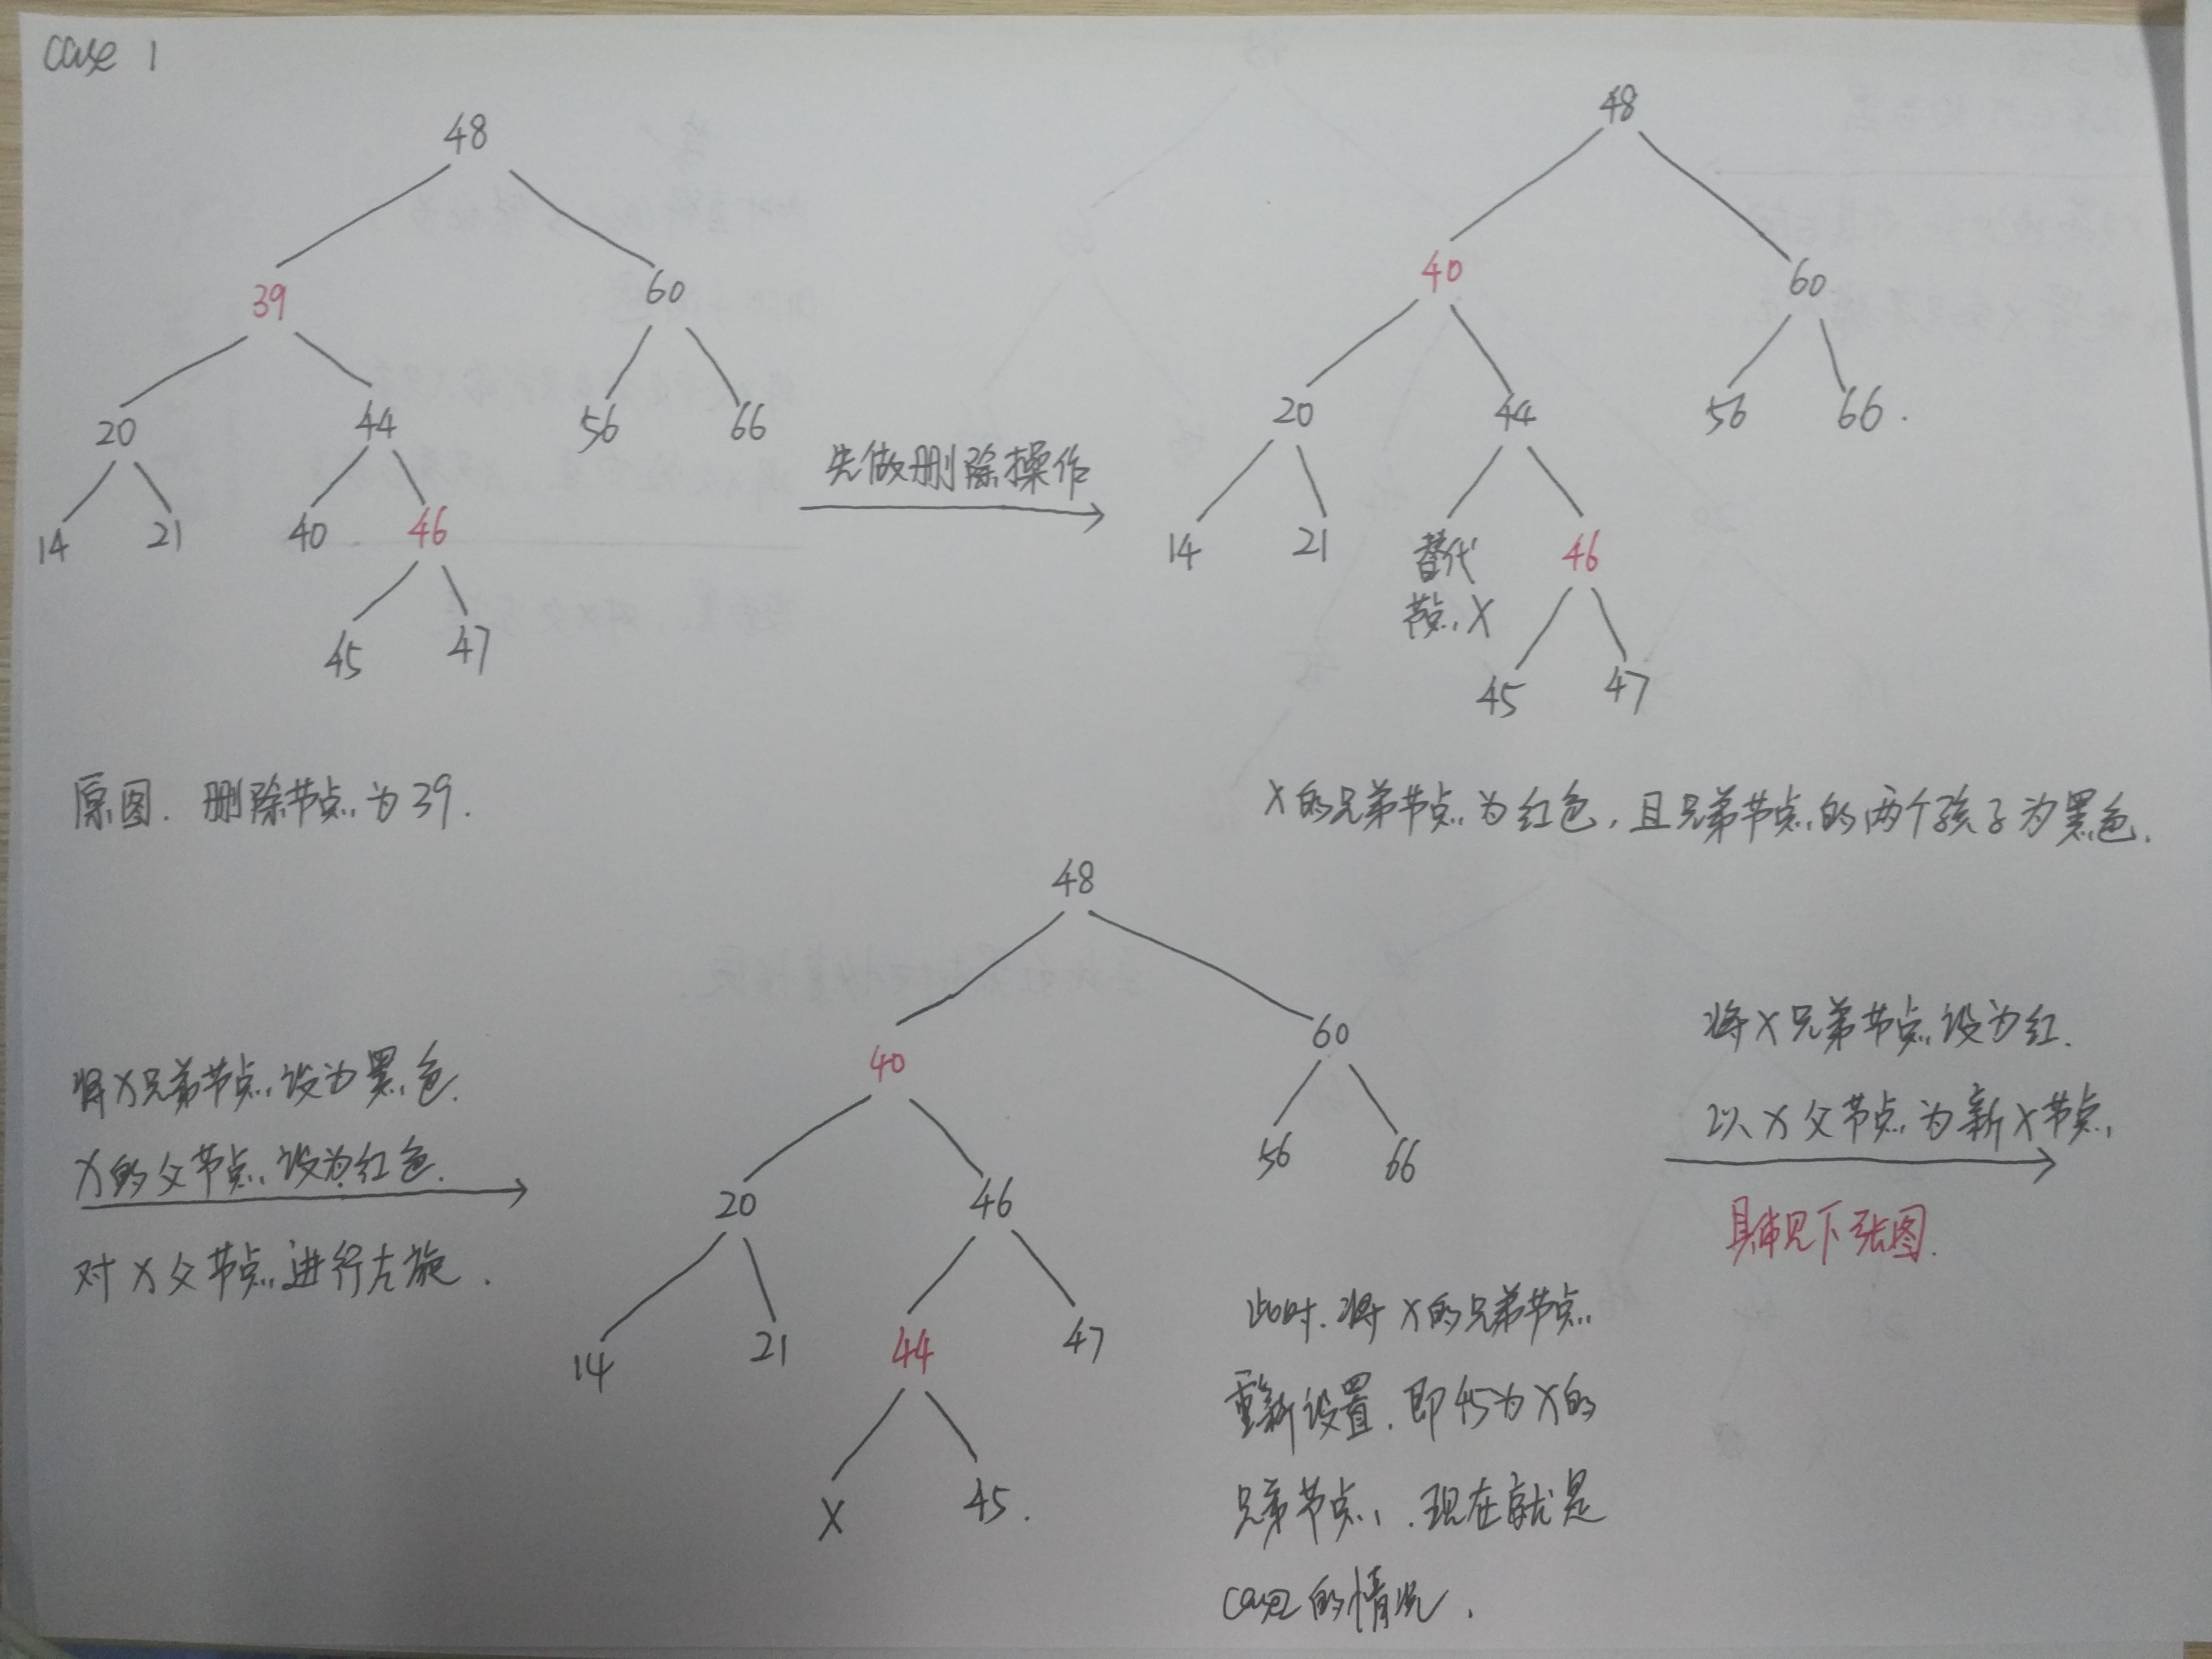 case 1
48
39 60
20 44 56 66
14 21 40 46
45 47
原图. 删除节点为39.
先做删除操作
48
40 60
20 44 56 66.
14 21 替代 46
节点X
45 47
X的兄弟节点为红色, 且兄弟节点的两个孩子为黑色.
将X兄弟节点设为黑色.
X的父节点设为红色.
对X父节点进行左旋.
48
40 60
20 46 56 66
14 21 44 47
X 45.
此时.将X的兄弟节点
重新设置.即45为X的
兄弟节点、.现在就是
case2的情况.
将X兄弟节点设为红.
以X父节点为新X节点,
具体见下张图.